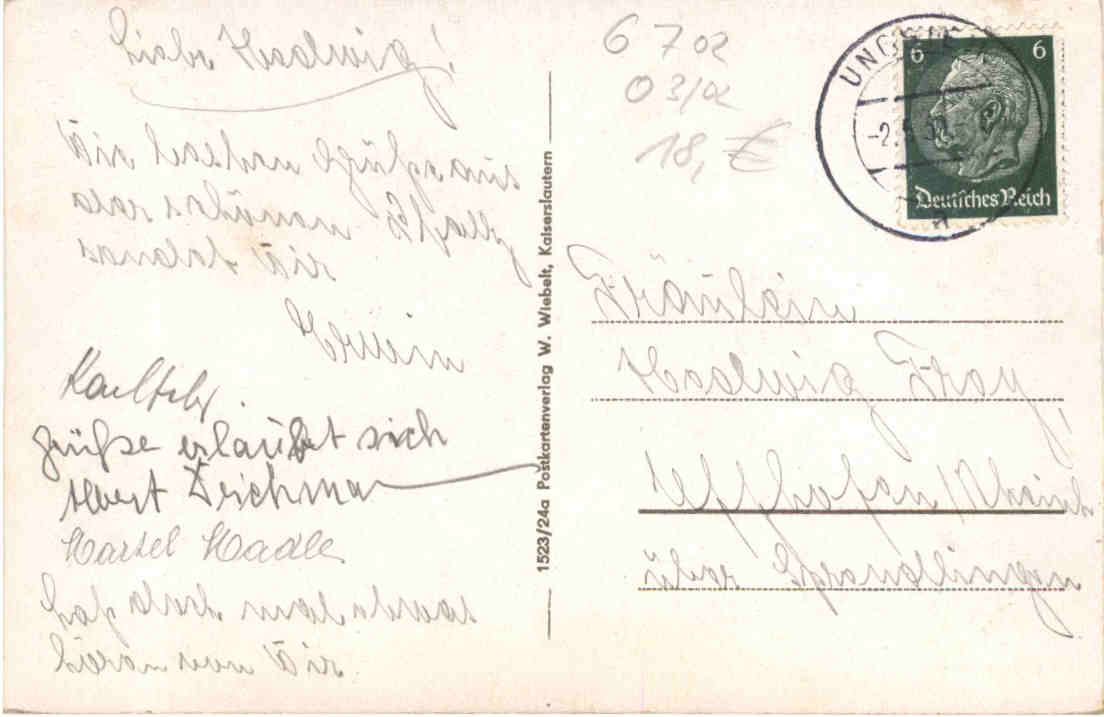 Liebe Hedwig!
Die besten Grüße aus
der schönen Pfalz
sendet Dir
Erwin
Grüße erlaubt sich
Albert Deichman
Laß doch mal etwas
hören von Dir.
1523/24a Postkartenverlag W. Wiebelt, Kaiserslautern
6 7 02
03/02
18,- €
6 6
Deutsches Reich
Fräulein
Hedwig Frey
Uffhofen/Rheinh
über Sprendlingen